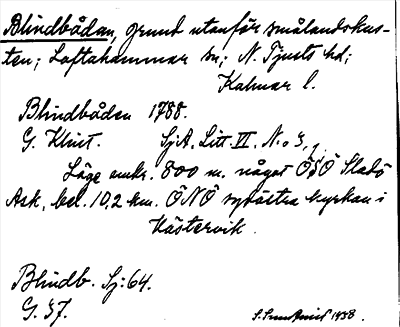 Blindbådan, grund utanför smålandskus-
ten; Loftahammar sn; N. Tjusts hd;
Kalmar l.
Blindbåden 1788.
G. Klint. SjA, Litt VI, N:o 3,
Läge omkr. 800 m. något ÖSÖ Sladö
Ask, bel. 10,2 km. ÖNÖ sydöstra kyrkan i
Västervik.
Blindb. Sj:64.
G. 37.
1938.